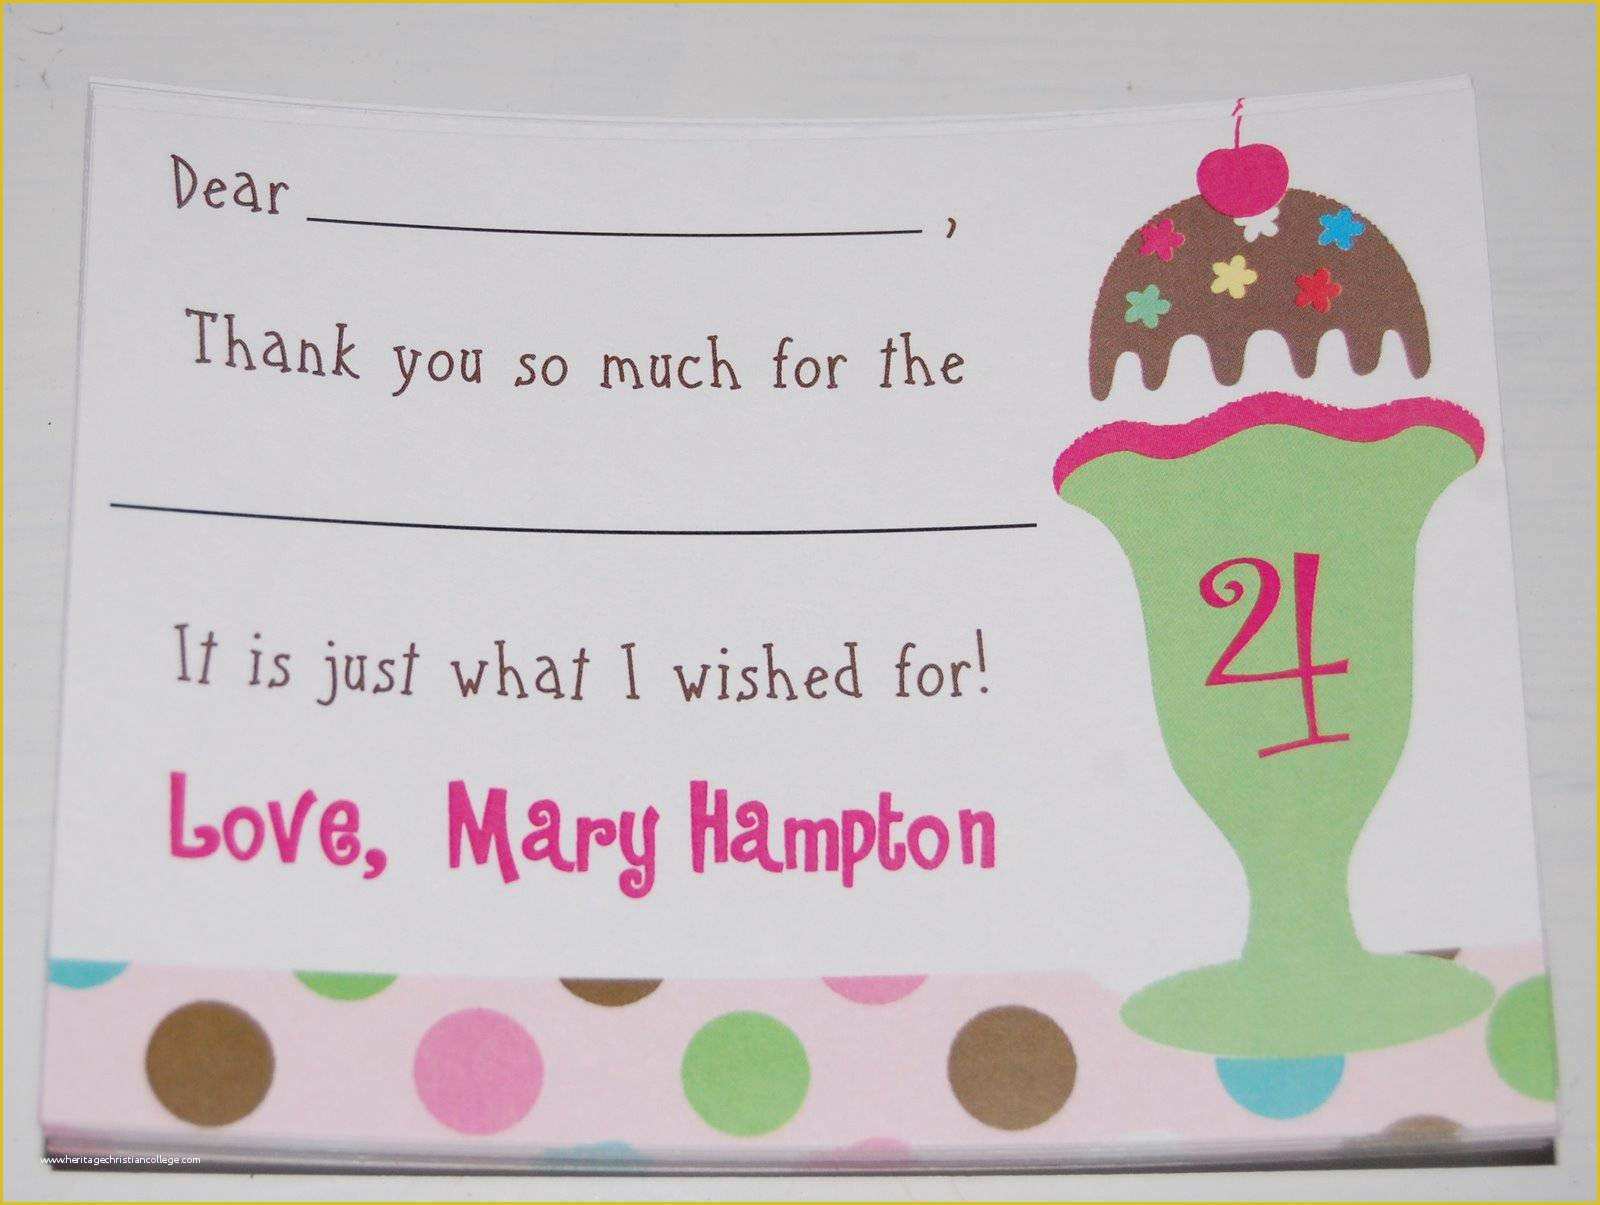 Dear ____________________ ,
Thank you so much for the
______________________________
It is just what I wished for!
Love, Mary Hampton
4
www.heritagechristiancollege.com